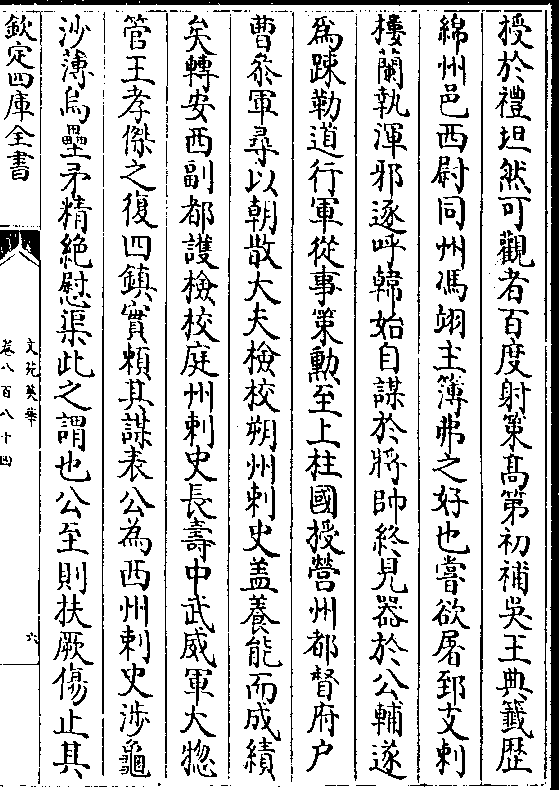 授於禮坦然可觀者百度射策高第初補吳王典籤歴
綿州邑西尉同州馮翊主簿弗之好也嘗欲屠郅支刺
樓蘭執渾邪逐呼韓始自謀於將帥終見器於公輔遂
為踈勒道行軍從事策勲至上柱國授營州都督府户
曹叅軍尋以朝散大夫檢校朔州刺史盖養能而成績
矣轉安西副都護檢校庭州刺史長壽中武威軍大惣
管王孝傑之復四鎮實頼其謀表公為西州刺史涉龜
沙薄烏壘矛精絶慰渠此之謂也公至則扶厥傷止其
欽定四庫全書
文苑英華
卷八百八十四
六